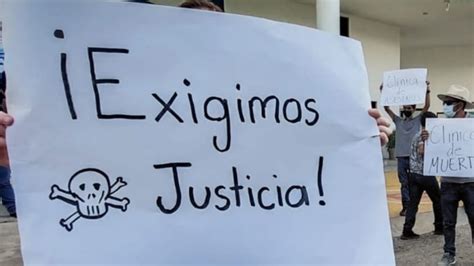 ¡Exigimos
Justicia!
CLINICA
de
CLINICA
de
MUERT